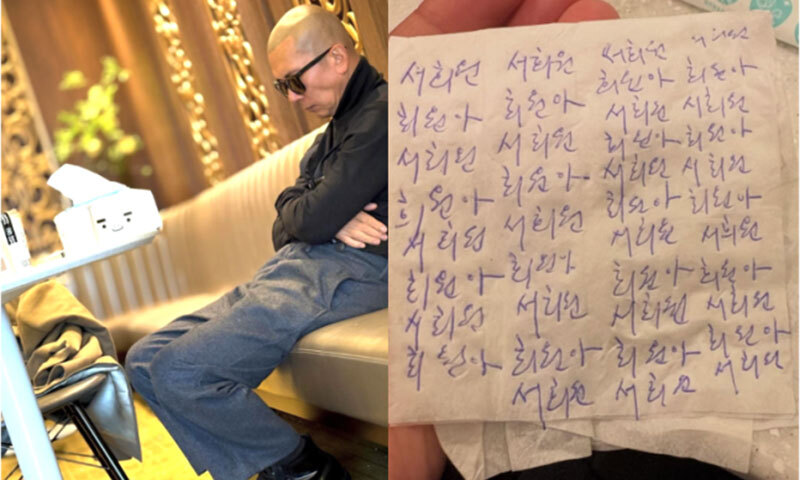 서희원 서희원 서희원 서희원
희원아 희원아
희원아 희원아 서희원 서희원
서희원 서희원 희원아 희원아
희원아 서희원 서희원
희원아 희원아 희원아
서희원 서희원 서희원 서희원
희원아 희원아 희원아 희원아
서희원 서희원 서희원 서희원
희원아 희원아 희원아 희원아
서희원 서희원 서희원